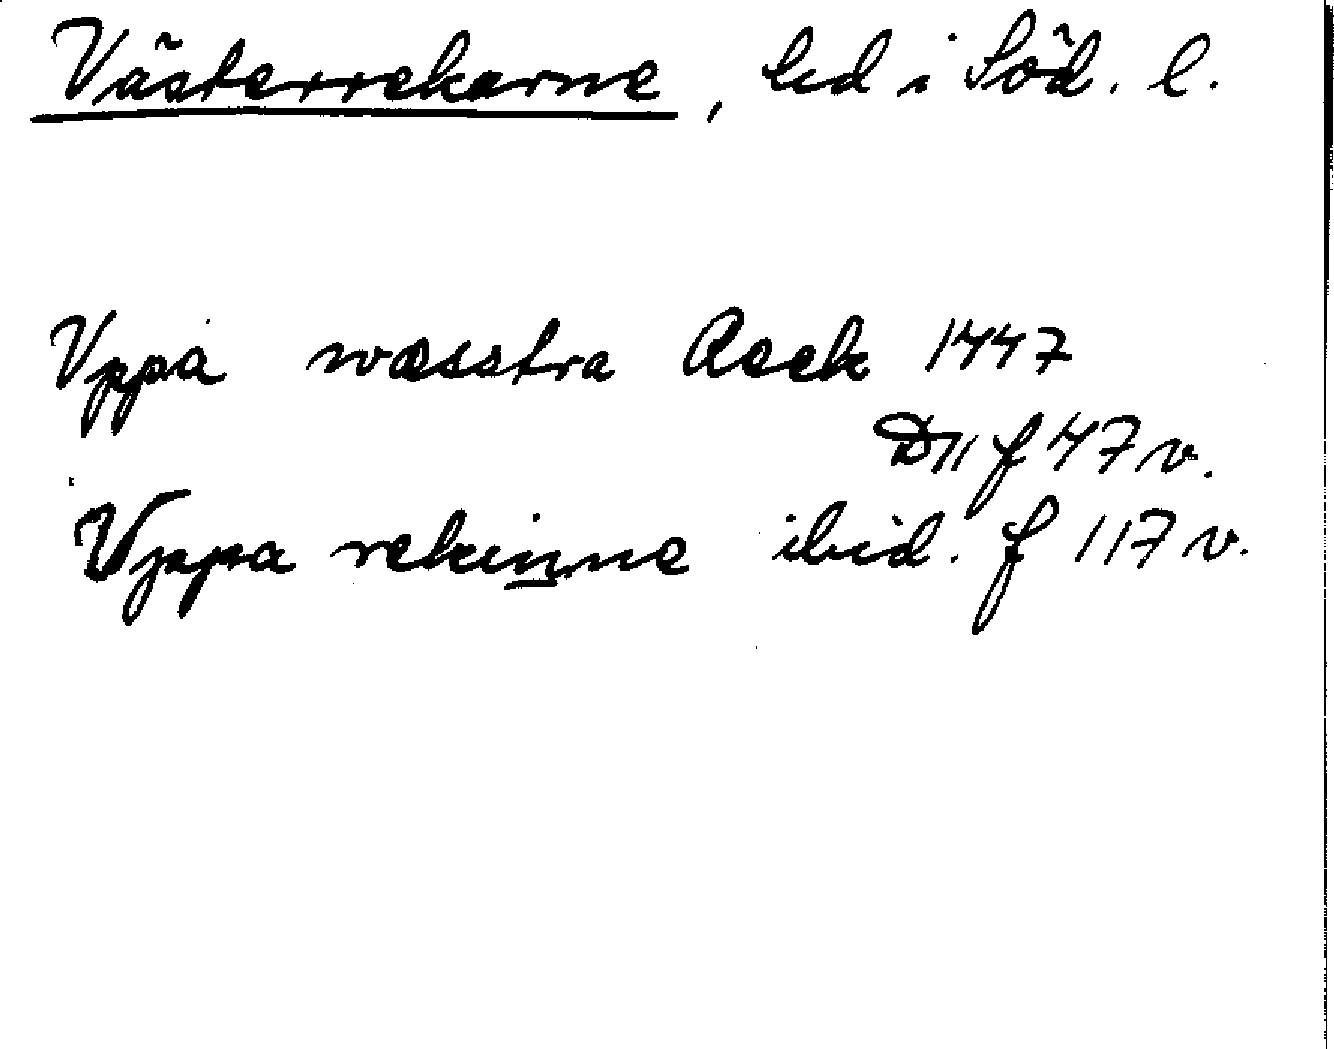 Västerrekarne, hd i Söd. l.
Vppa wæsstra Reek 1447
D 11 f 47 v.
Vppa rekinne ibid. f 117 v.